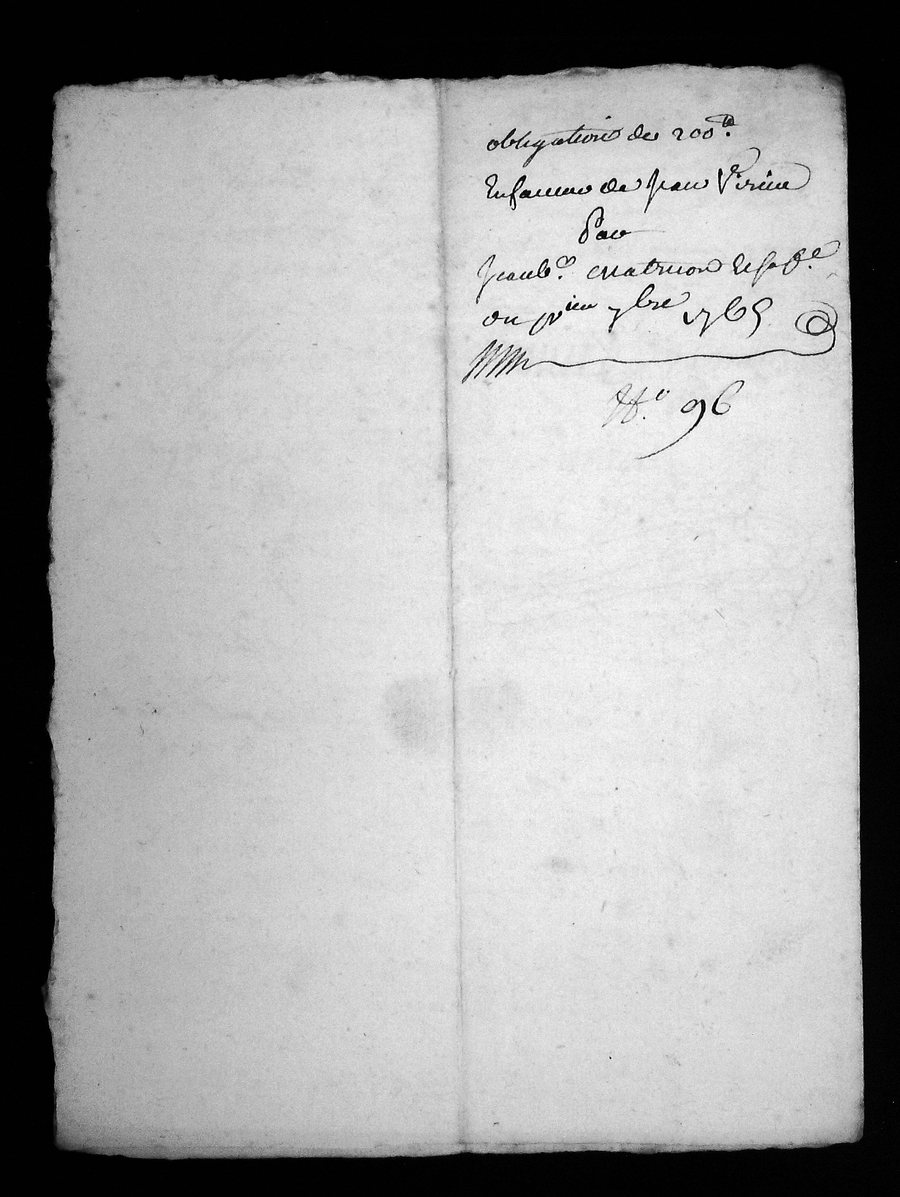 obligation de 200 lt.
En faveur de Jean Virim
Par
Jean bte. et sa fe.
du pr ier 7bre 1765
No. 96